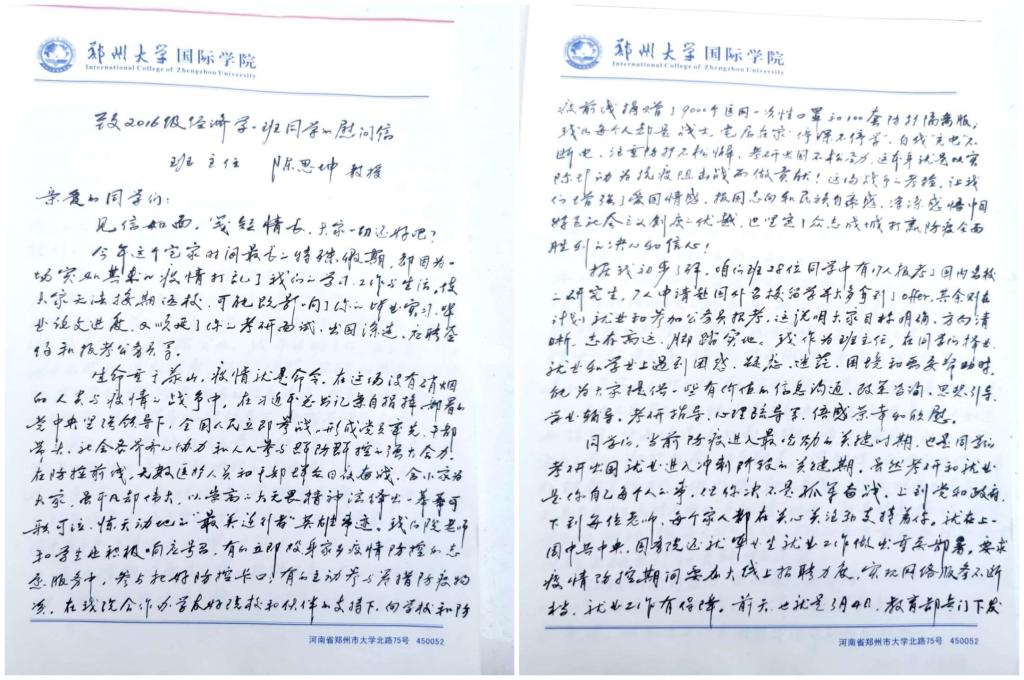 郑州大学国际学院
International College of Zhengzhou University
致2016级经济学一班同学的慰问信
班主任 陈思坤 教授
亲爱的同学们:
见信如面,笺短情长,大家一切还好吧?
今年这个宅家时间最长的特殊假期,却因为一
场突如其来的疫情打乱了我们的学习、工作与生活。使
大家无法按期返校,可能既影响了你的毕业实习、毕
业论文进度,又顺延了你的考研面试、出国深造、应聘签
约和报考公务员等。
生命重于泰山,疫情就是命令,在这场没有硝烟
的人类与疫情的战争中,在习近平总书记亲自指挥、部署的
党中央坚强领导下,全国人民立即参战,形成党员率先、干部
带头、社会各界齐心协力和人人参与群防群控的强大合力。
在防控前线,无数医护人员和干部群众日夜奋战,舍小家为
大家,虽平凡却伟大,以崇高的大无畏精神演绎出一幕幕可
歌可泣、惊天动地的“最美逆行者”英雄事迹。我们院老师
和学生也积极响应号召,有的立即投身家乡疫情防控的志
愿服务中,参与把好防控卡口;有的主动参与筹措防疫物
资,在我院合作办学友好院校和伙伴的支持下,向学校和防
河南省郑州市大学北路75号 450052
郑州大学国际学院
International College of Zhengzhou University
疫前线捐赠了9000个医用一次性口罩和100套防护隔离服,
我们每个人都是战士。宅居在家“停课不停学”,自我“充电”不
断电,注重防护不松懈,考研出国不松劲,这本身就是以实
际行动为抗疫阻击战而做贡献!这场战争的考验,让我
们增强了爱国情感、报国志向和民族自豪感,深深感悟中国
特色社会主义制度的优越,也坚定了众志成城打赢防疫全面
胜利的决心和信心!
据我初步了解,咱们班28位同学中有17人报考了国内名校
的研究生,7人申请赴国外名校留学并大多拿到了offer,其余则在
计划就业和参加公务员报考。这说明大家目标明确、方向清
晰、志在高远、脚踏实地。我作为班主任,在同学们择业、
就业和学业上遇到困惑、疑虑、迷茫、困境和需要帮助时,
能为大家提供一些有价值的信息沟通、政策咨询、思想引导、
学业辅导、考研指导、心理疏导等,倍感荣幸和欣慰。
同学们,当前防疫进入最吃劲的关键时期,也是同学们
考研出国就业进入冲刺阶段的关键期。虽然考研和就业
是你自己每个人的事,但你决不是孤军奋战,上到党和政府,
下到每位老师、每个家人都在关心关注和支持着你。就在上一
周中共中央、国务院还就毕业生就业工作做出重要部署。要求
疫情防控期间要加大线上招聘力度,实现网络服务不断
档、就业工作有保障。前天,也就是3月4日,教育部专门下发
河南省郑州市大学北路75号 450052